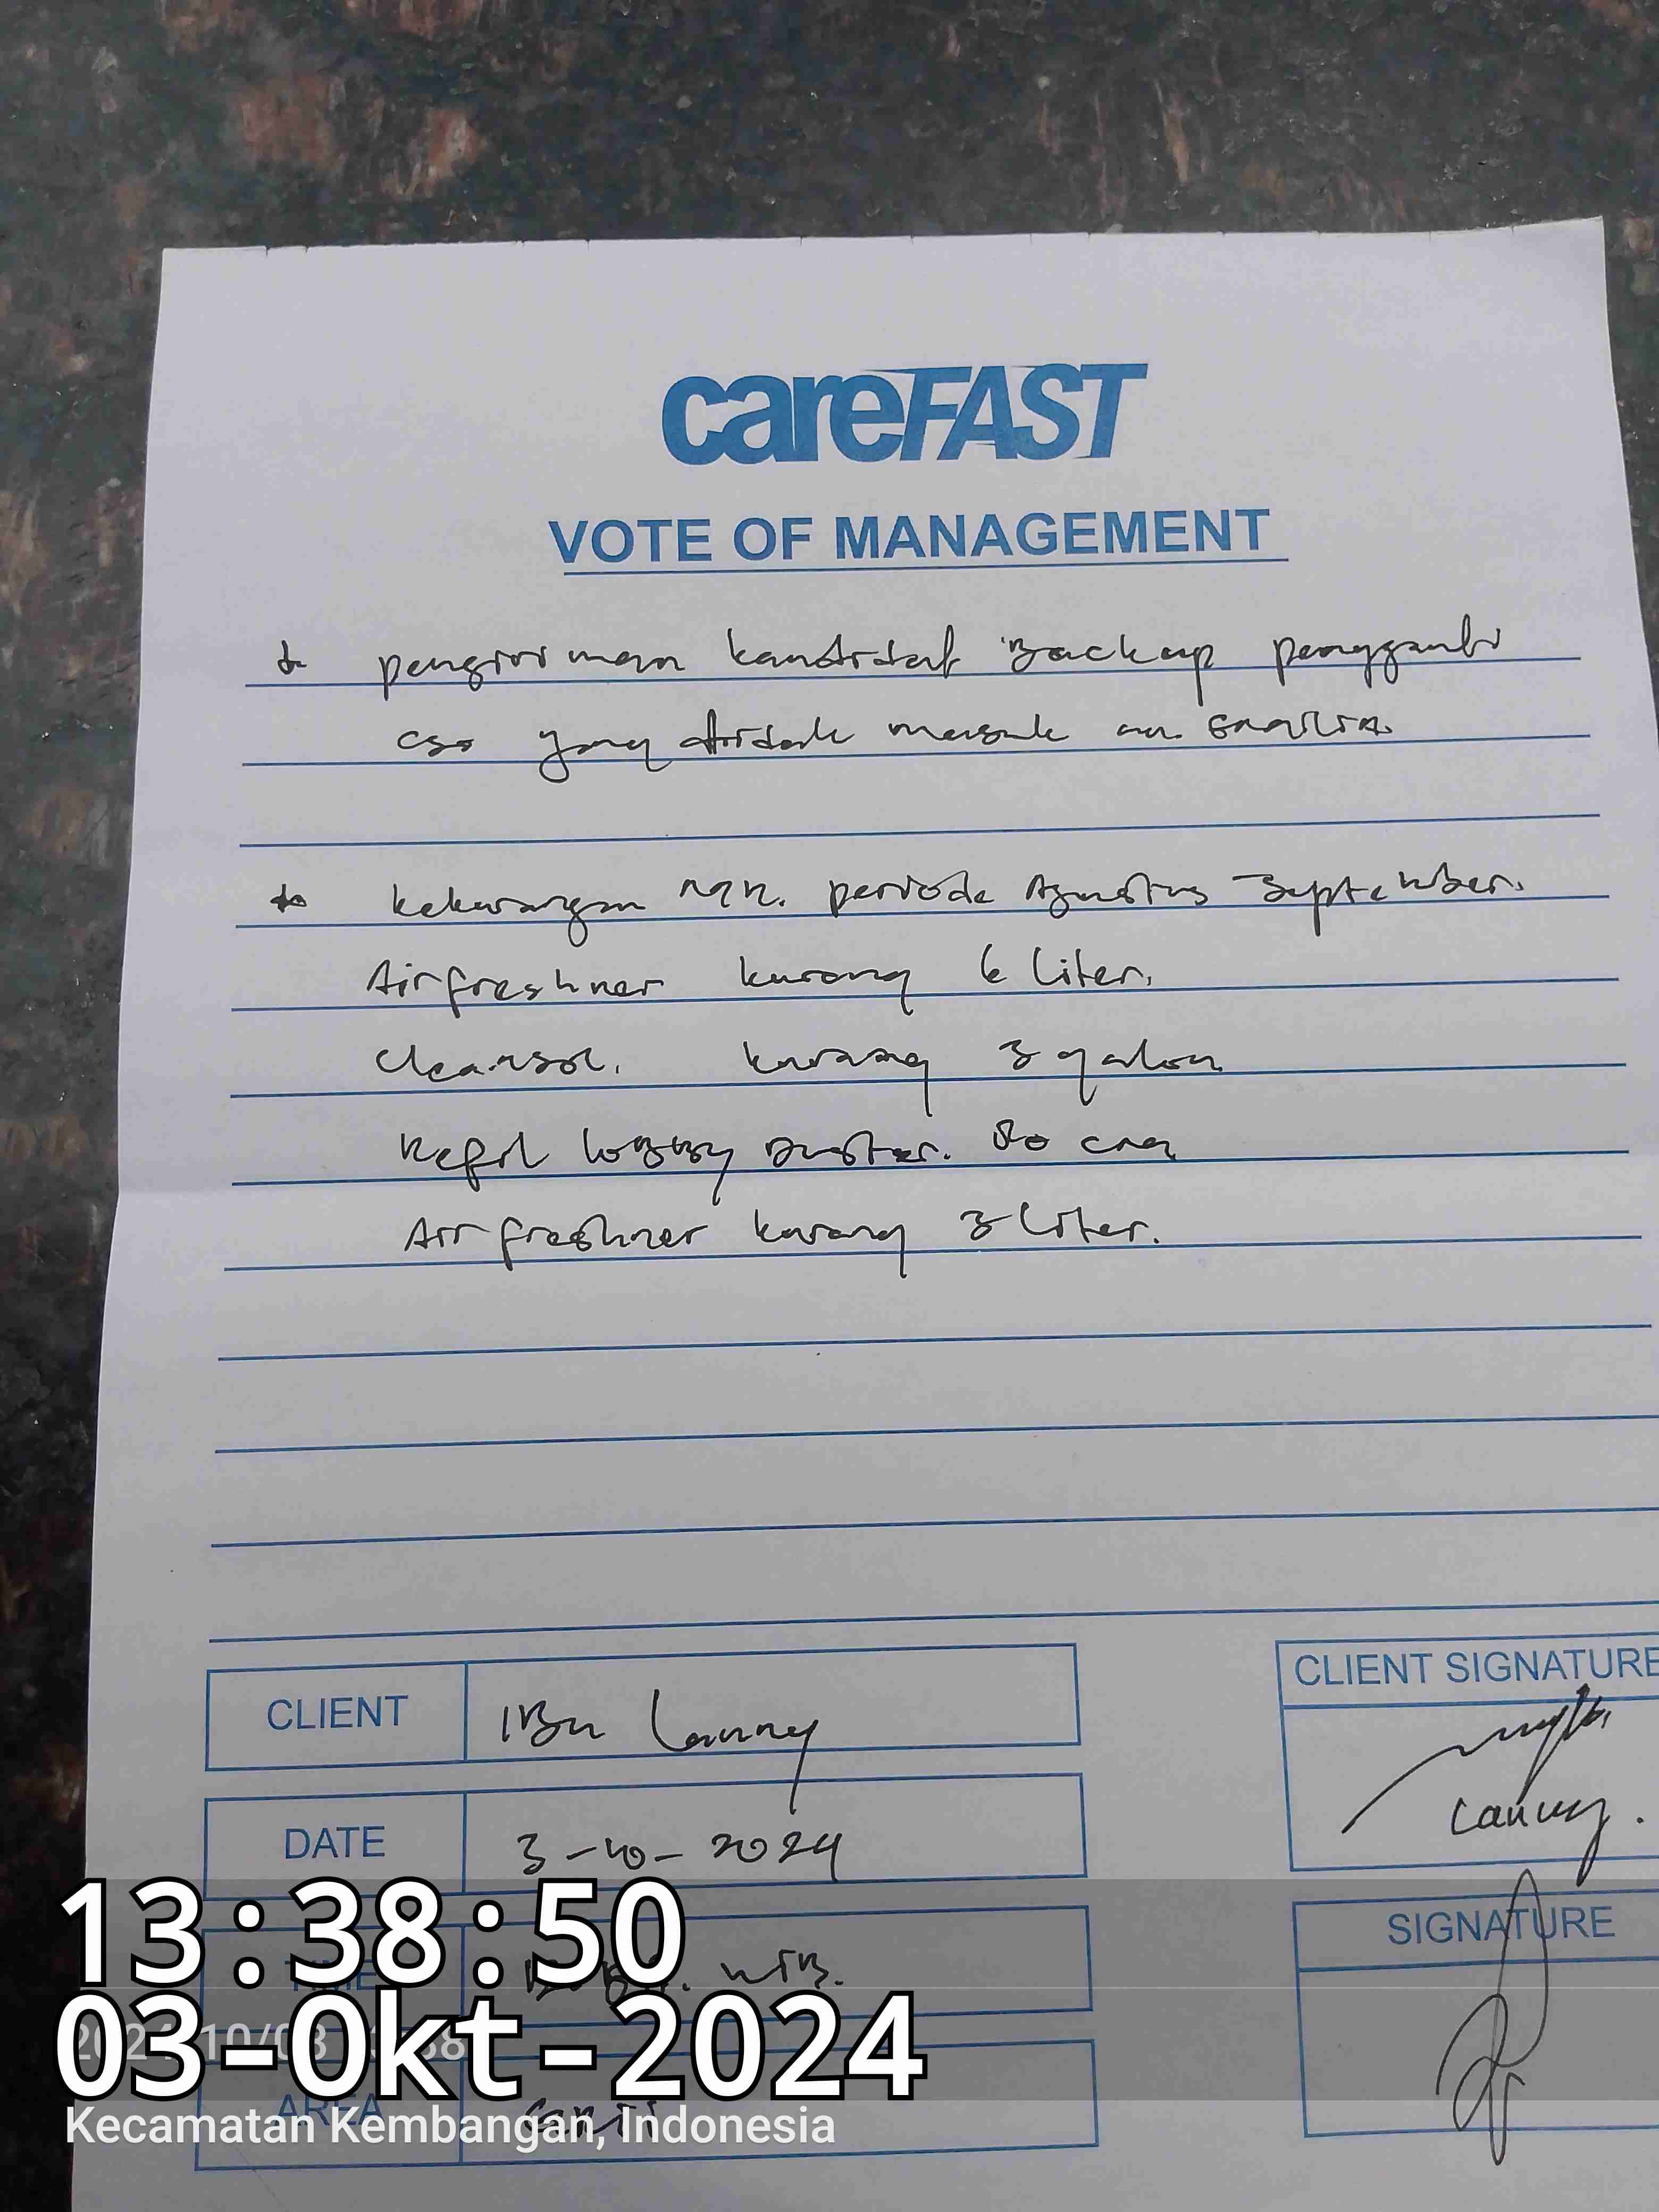 careFAST
VOTE OF MANAGEMENT
pengiriman kandidat Backup pengganti
cso yang tidak masuk an
kekurangan periode Agustus September.
Airfreshner kurang 6 liter.
Cleansol. kurang 3 galon
Refil lobby Duster. 80 cm
Air freshner kurang 3 liter.
CLIENT IBu Lanny
CLIENT SIGNATURE
Lanny.
DATE 3-10-2024
SIGNATURE
13:38:50
TIME WIB.
03-Okt-2024
AREA
Kecamatan Kembangan, Indonesia